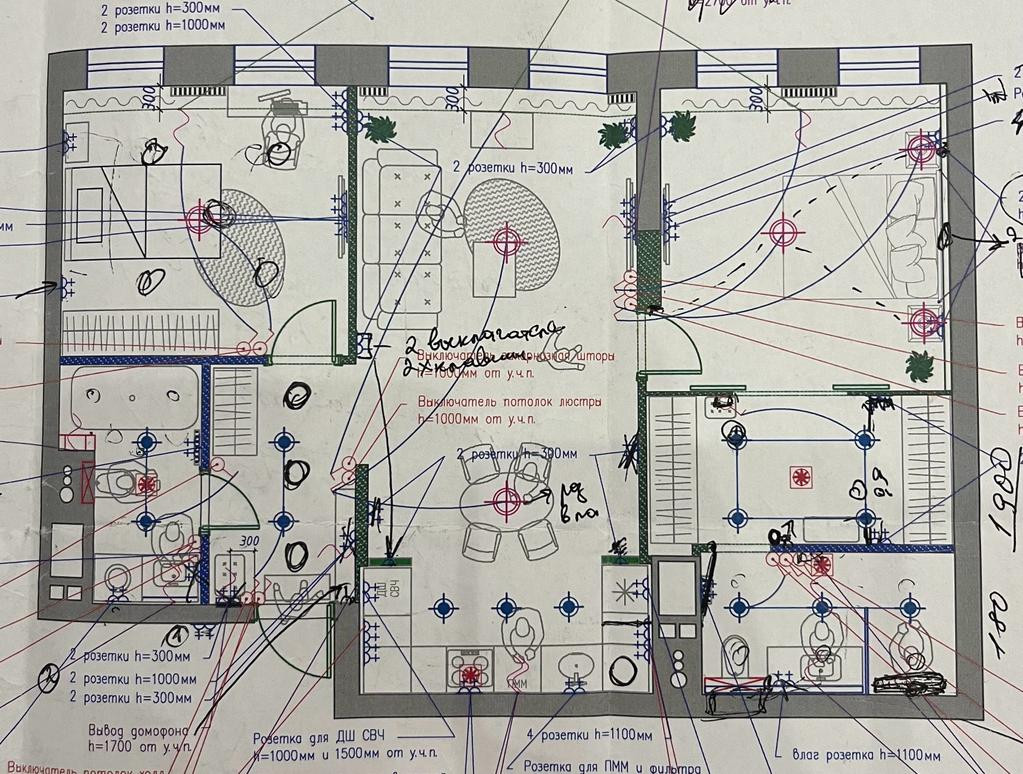 2 розетки h=300мм
2 розетки h=1000мм
300
300
300
2 розетки h=300мм
2 выключателя
Выключатель
шторы
h=1000мм от у.ч.п.
Выключатель потолок люстры
h=1000мм от у.ч.п.
2 розетки h=300мм
300
ДШ
СВЧ
ПММ
1500
180
1
2 розетки h=300мм
2
2 розетки h=1000мм
2 розетки h=300мм
Вывод домофона
h=1700 от у.ч.п.
Розетка для ДШ СВЧ
h=1000мм и 1500мм от у.ч.п.
4 розетки h=1100мм
Розетка для ПММ и фильтра
влаг розетка h=1100мм
Выключатель потолок холл